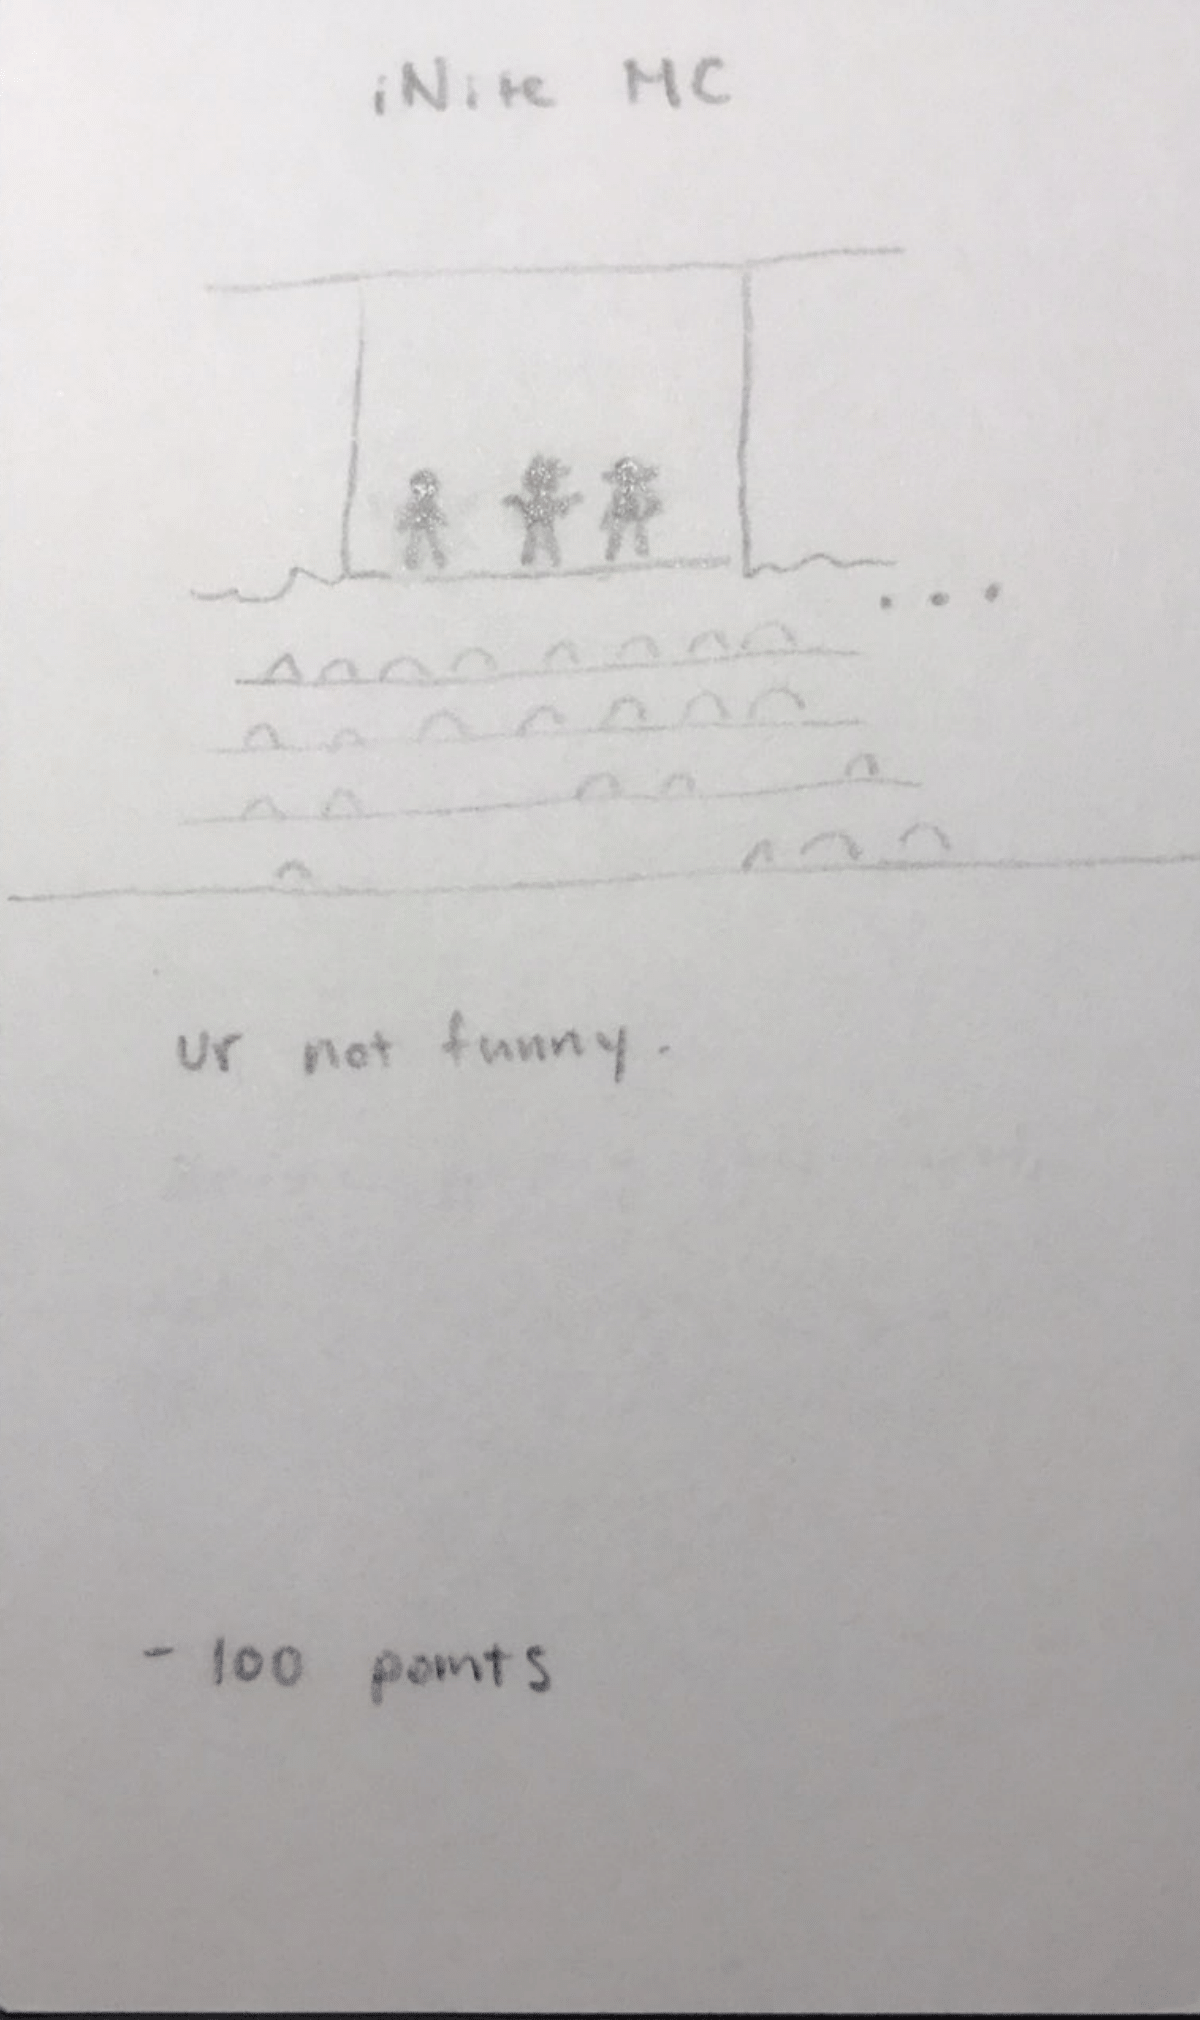 iNite MC
...
ur not funny.
- 100 points